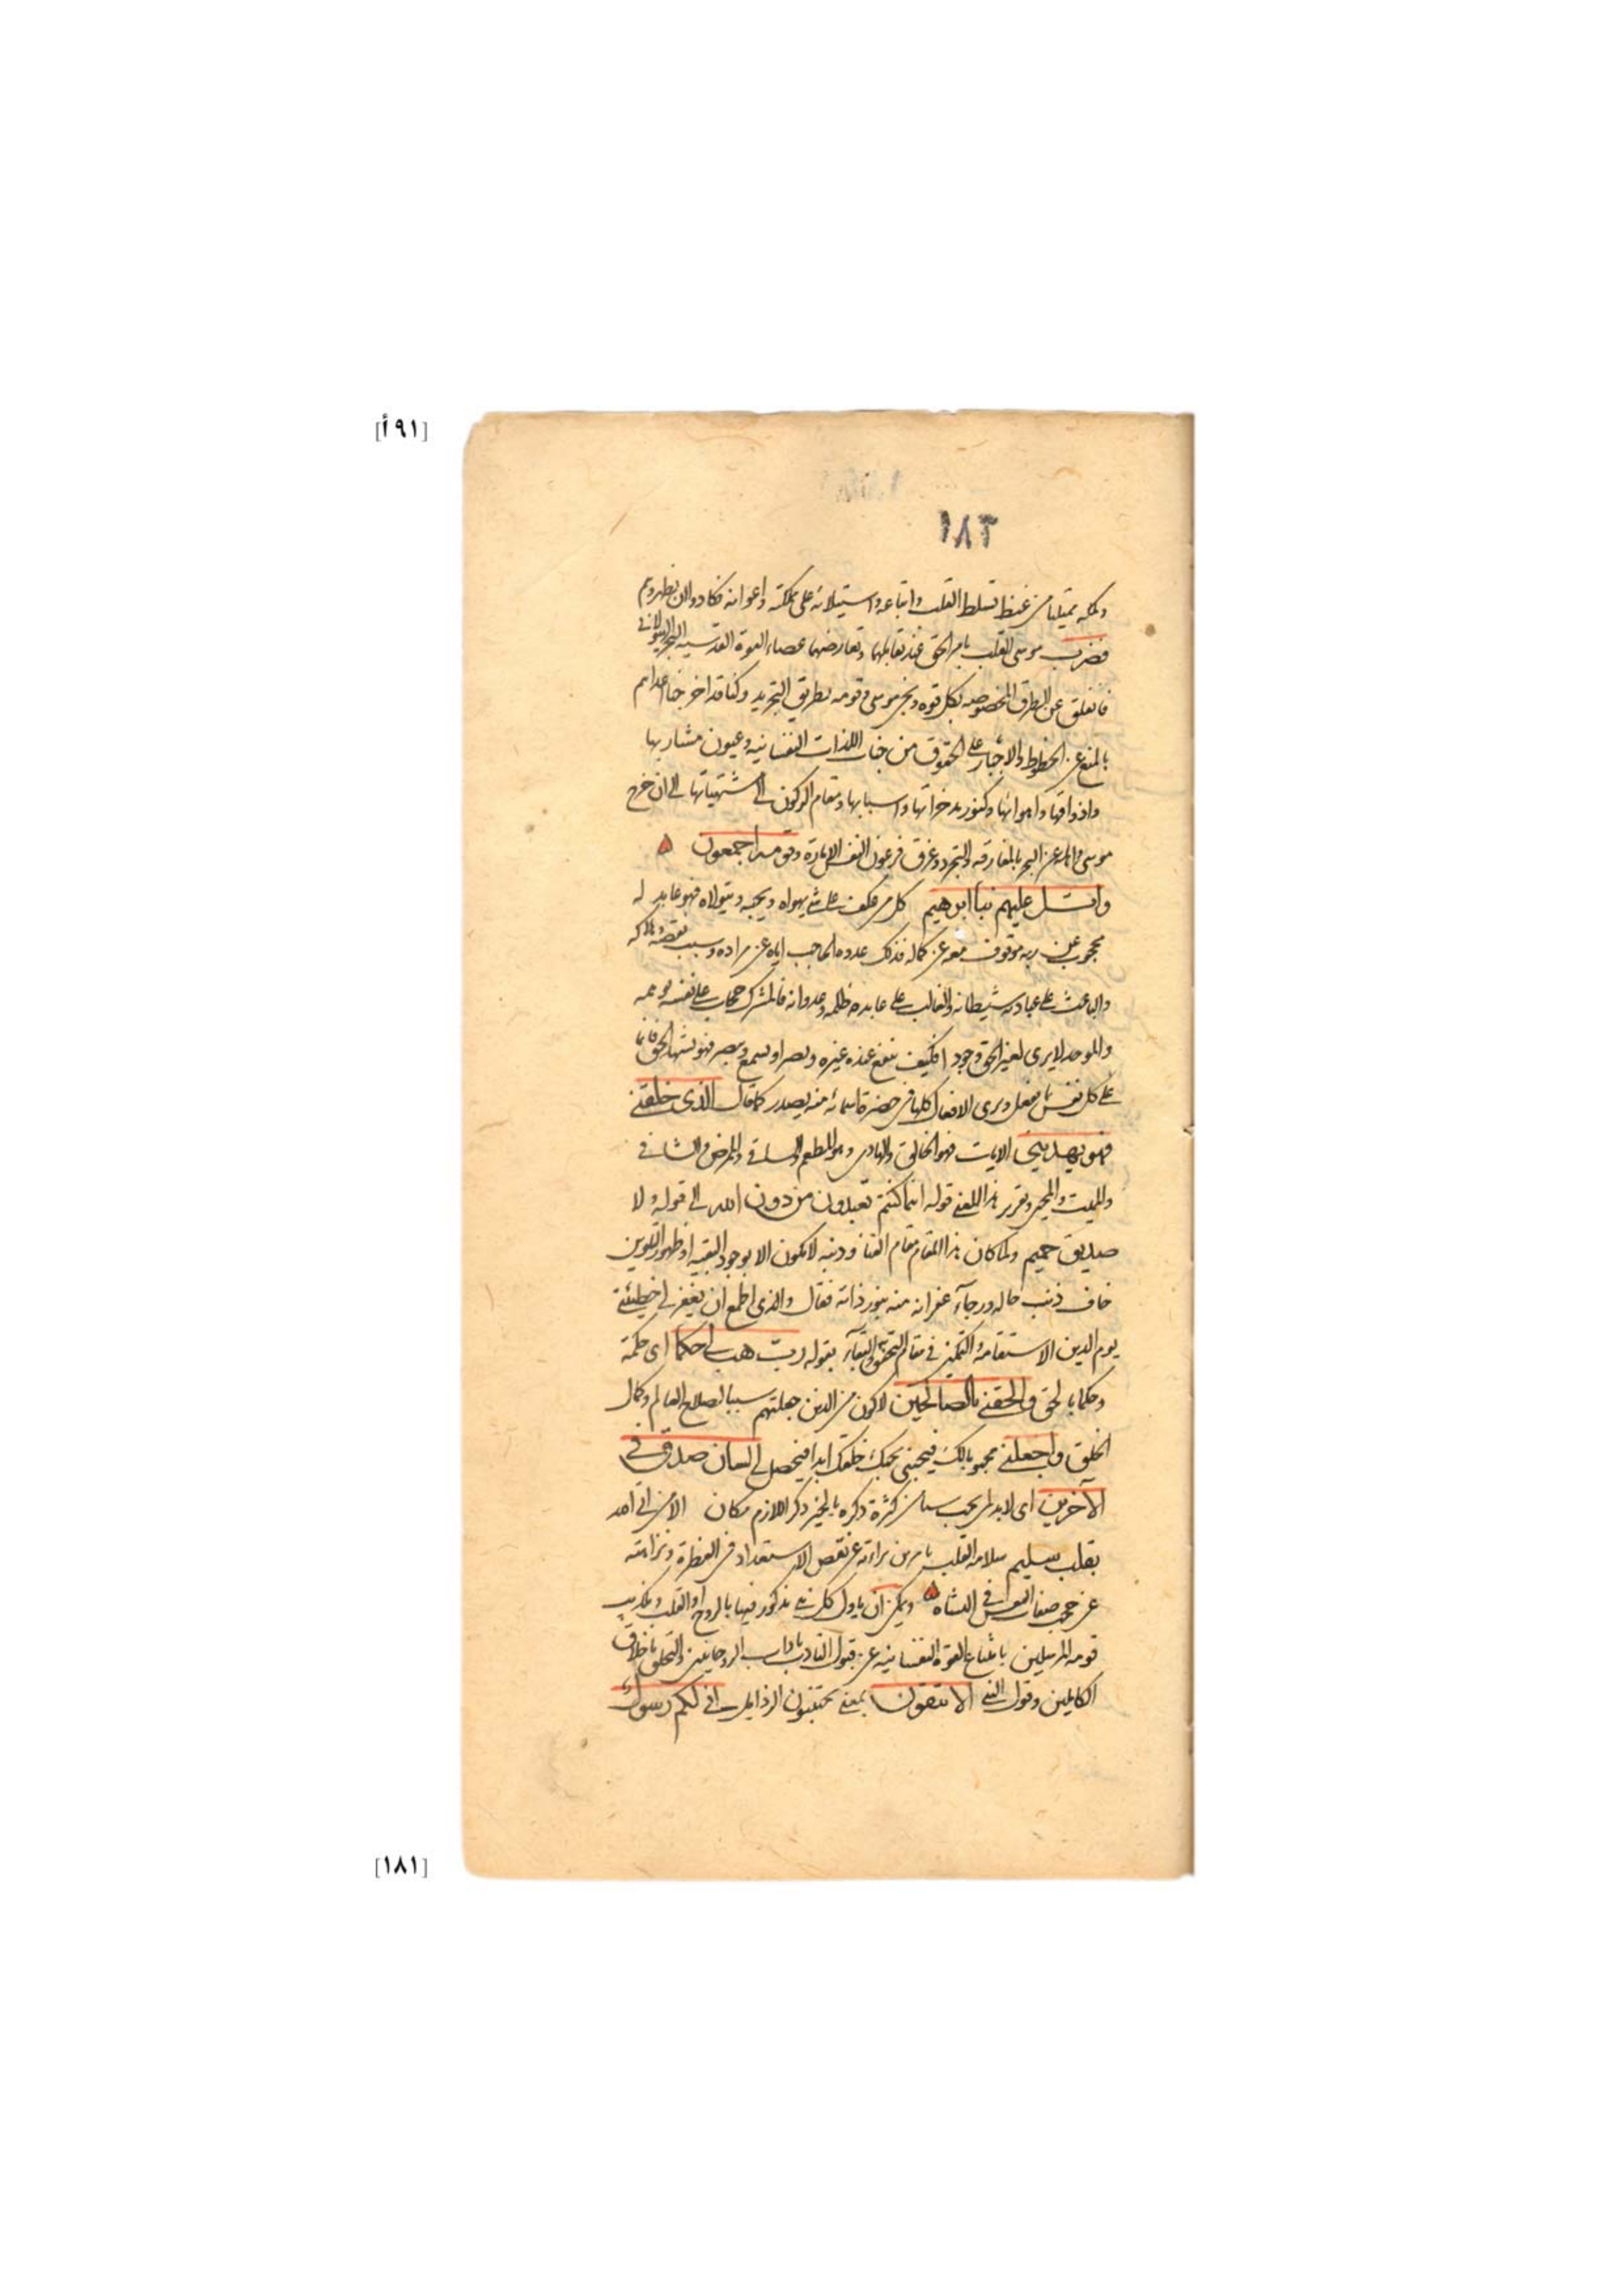 [٩١أ]
١٨٢
وكله ممتليا من غيظ تسلط القلب واتباعه واستيلائه على مملكته واعوانه فكادوا ان يظهروهم
فضرب موسى القلب بامر الحق عند تقابلهما وتعارضهما عصاء القوة القدسيه البحر الهيولاني
فانفلق عن الطرق المخصوصه بكل قوه ونجى موسى وقومه بطريق التجريد وكنا قد اخرجنا اعداءهم
بالمنع عن الحظوظ والاجبار على الحقوق من جنات اللذات النفسانيه وعيون مشاربها
واذواقها واهوائها وكنوز مدخراتها واسبابها ومقام الركون الى مشتهياتها الى ان خرج
موسى واهله عن البحر بالمفارقه والتجرد وغرق فرعون النفس الاماره وقومه اجمعون
واتل عليهم نبأ ابرهيم كل من عكف على شئ يهواه ويحبه ويتولاه فهو عابد له
محجوب عن ربه موقوف معه عن كماله فذلك عدوه الحاجب اياه عن مراده وسبب نقصه وهلاكه
والباعث على عبادته شيطانه والغالب على عابده ظلمه وعدوانه فالمشرك حجاب على نفسه بوهمه
والموحد لا يرى لغير الحق وجودا فكيف ينفع عنده غيره ويضر او يسمع ويبصر فهو يشهد الحق قائما
على كل نفس بما يفعل ويرى الافعال كلها في حضرة اسمائه منه يصدر كما قال الذى خلقني
فهو يهدين الايات فهو الخالق والهادى وهو المطعم والساقي والممرض والشافي
والمميت والمحيى ويقرر هذا المعنى قوله اينما كنتم تعبدون من دون الله الى قوله ولا
صديق حميم ولما كان هذا المقام مقام الفناء وذنبه لا يكون الا بوجود البقيه او ظهور التلوين
خاف ذنب حاله ورجآء غفرانه منه بنور ذاته فقال والذى اطمع ان يغفر لي خطيئتي
يوم الدين الاستقامه والتمكين في مقام التحقق والبقآء بقوله رب هب لي حكما اى حكمة
وحكما بالحق والحقني بالصالحين لاكون من الذين جعلتهم سببا لصلاح العالم وكمال
الخلق واجعلني محبوبا لك فيحبني بحبك خلقك ابدا فيحصل لي لسان صدق في
الآخرين اى لابد لمن يحب شيئا من كثرة ذكره بالخير ذكر اللازم مكان الا من اتى الله
بقلب سليم سلامه القلب بامرين براءته عن نقص الاستعداد في الفطرة ونزاهته
عن حجب صفات النفس في النشاه ويمكن ان ياول كل نبي مذكور فيها بالروح او القلب وتكذيب
قومه المرسلين بامتناع القوة النفسانيه عن قبول التادب باداب الروحانيين والتخلق باخلاق
الكاملين وقول النبي الا تتقون بمعنى تجتنبون الرذايل اني لكم رسول
[١٨١]